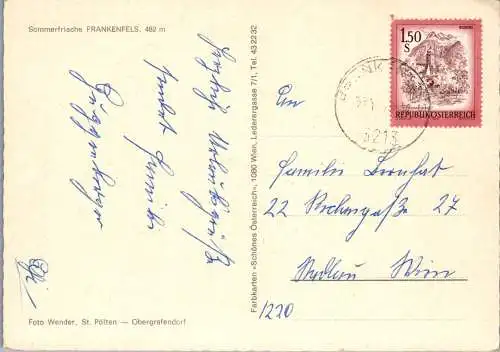 Sommerfrische FRANKENFELS, 482 m
Herzliche Urlaubsgrüße
sendet Familie
Guggenberger
Foto Wender, St. Pölten — Obergrafendorf
Farbkarten «Schönes Österreich», 1080 Wien, Lederergasse 7/1, Tel. 432232
1.50
S
REPUBLIK ÖSTERREICH
3213
An
Familie
22 27
Stadlau Wien
1220